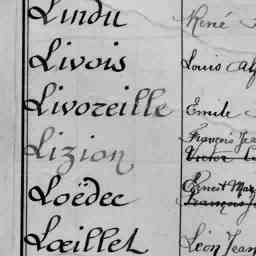 Lindu René
Livois Louis Al
Livoreille Emile
Lizion François Jea
Victor
Loëdec Ernest Mar
François J
Lœillet Léon Jean